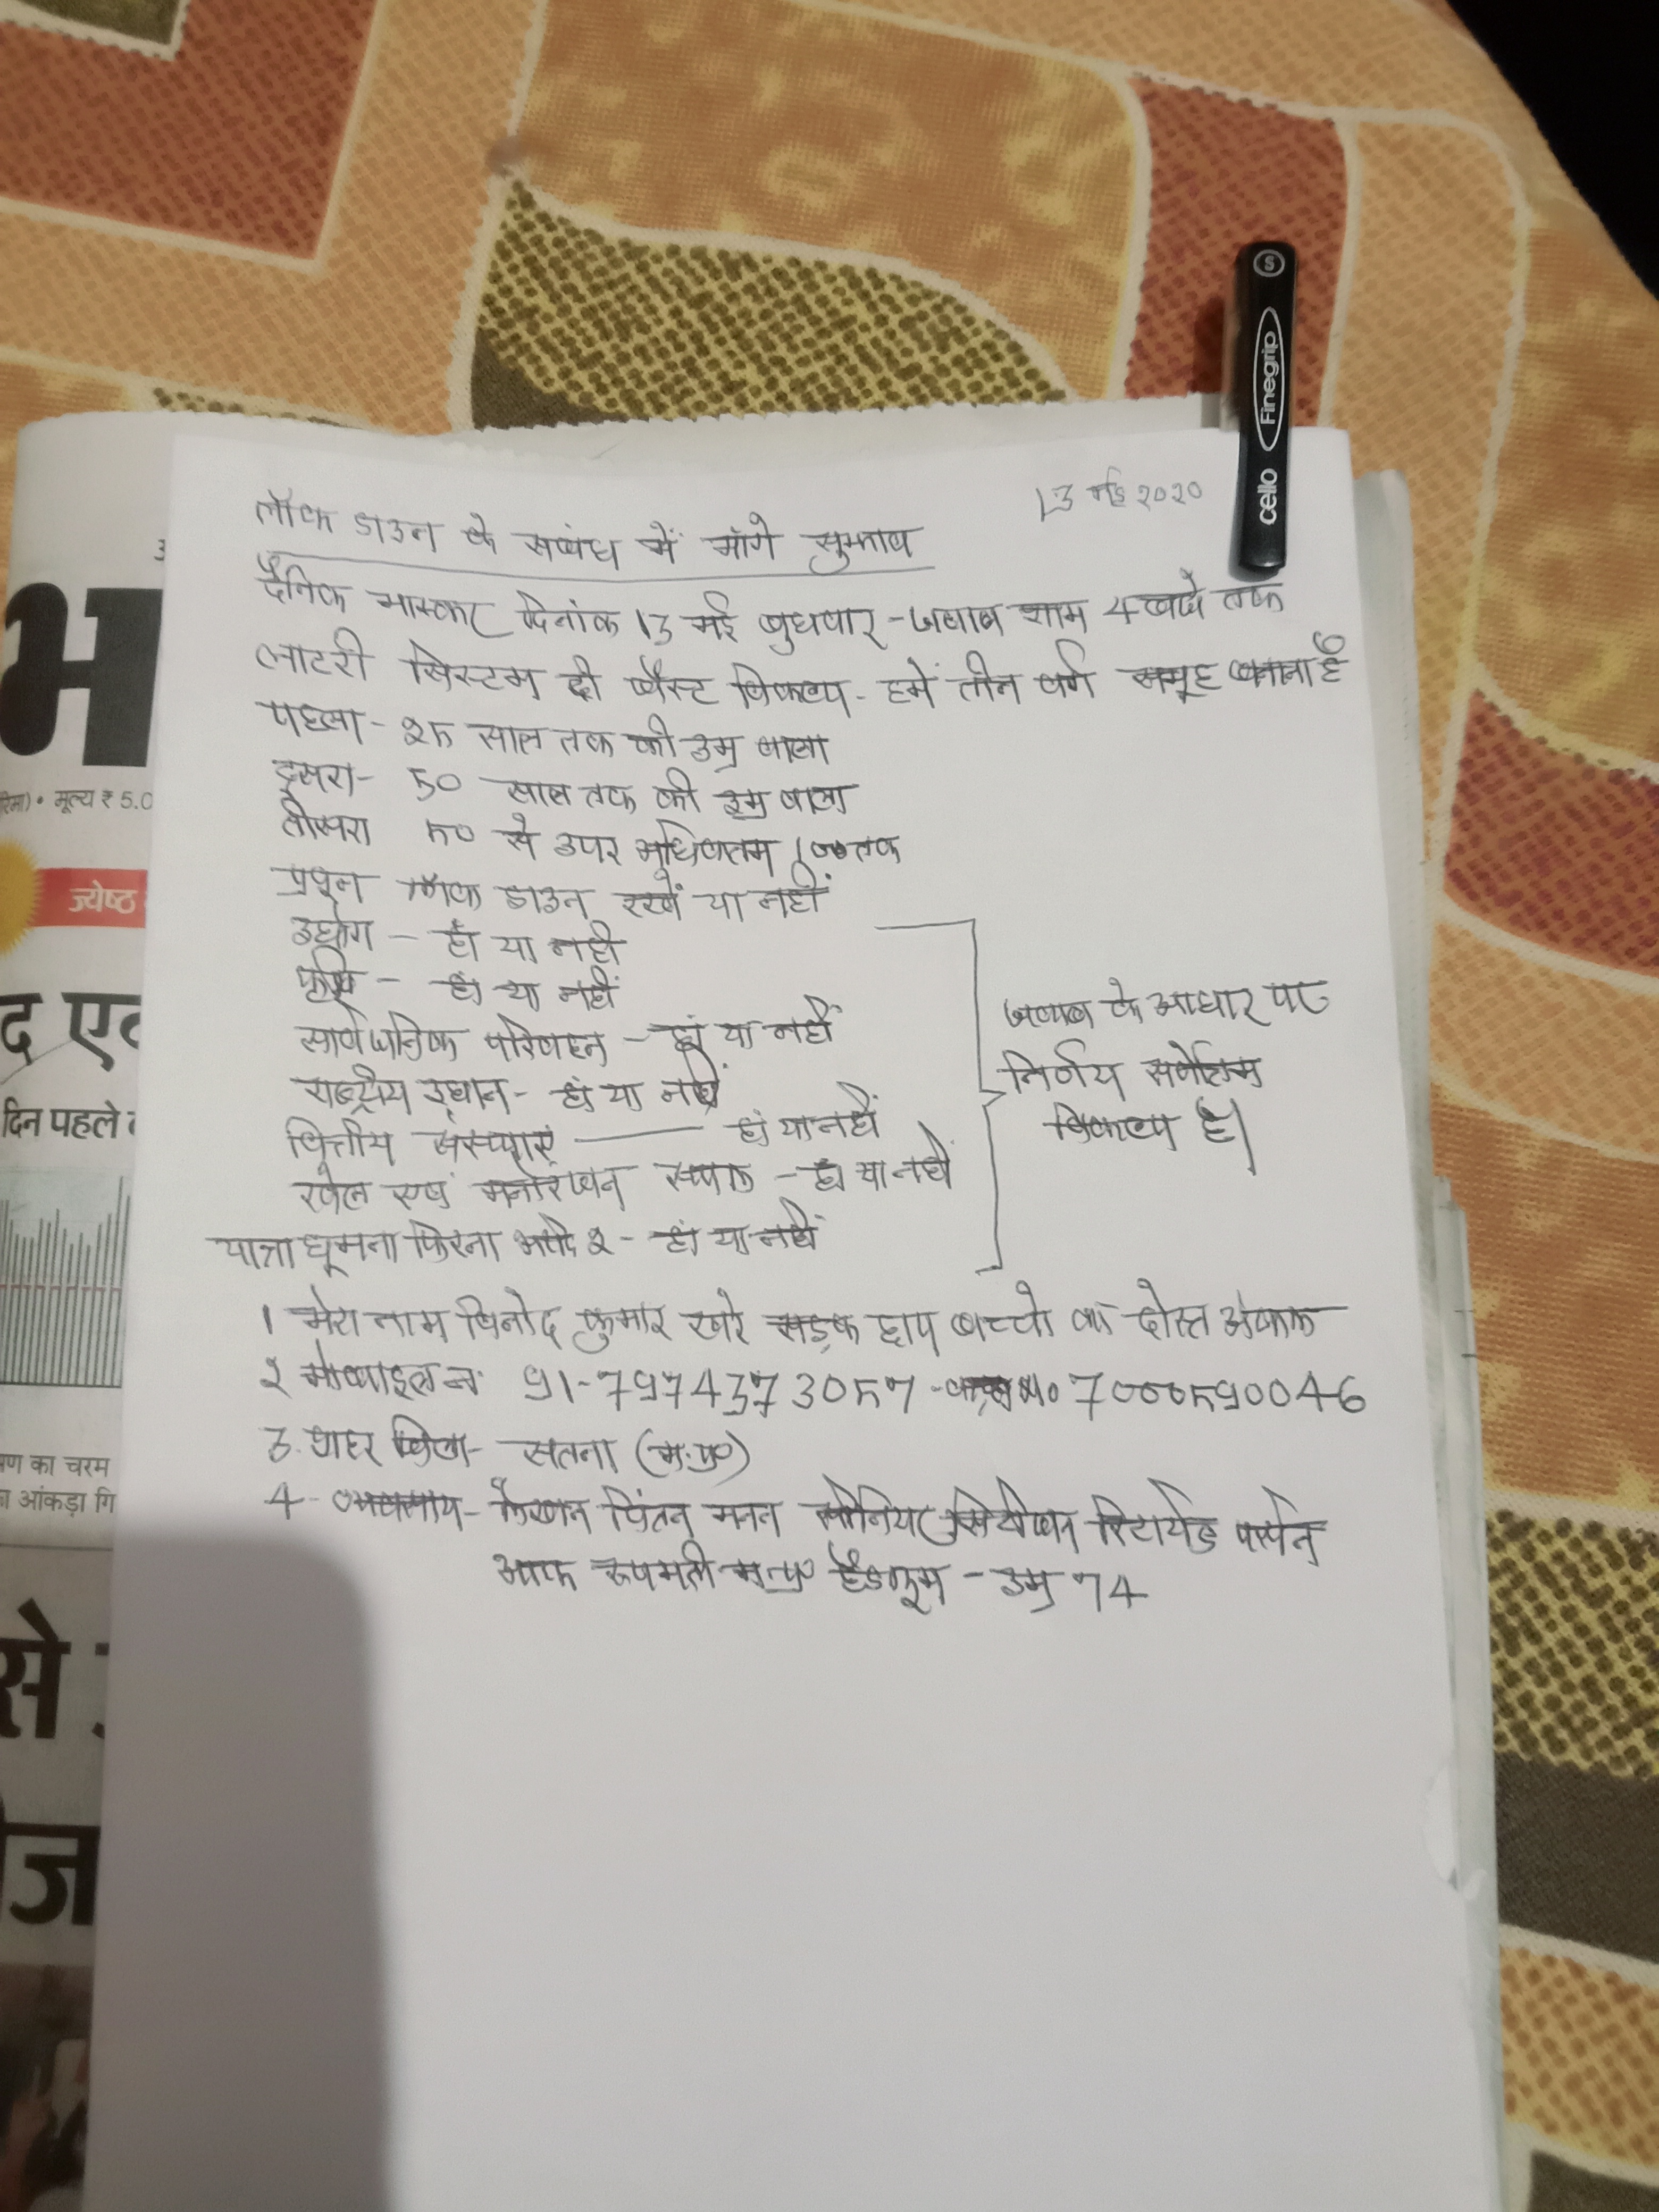 13 मई २०२०
लॉक डाउन के सबंध में माँगे सुझाव
दैनिक भास्कर दिनांक 13 मई बुधवार - जवाब शाम 4 बजे तक
लाटरी सिस्टम ही बैस्ट विकल्प - हमें तीन वर्ग समूह बनाना है
पहला - २५ साल तक की उम्र वाला
दूसरा - ५० साल तक की उम्र वाला
तीसरा ५० से उपर अधिकतम 100 तक
प्रश्न लॉक डाउन रखें या नहीं
उद्योग - हाँ या नही
कृषि - हां या नहीं
सार्वजनिक परिवहन - हां या नहीं
राष्ट्रीय उद्यान - हां या नहीं
वित्तीय संस्थाएं - हां या नहीं
खेल एवं मनोरंजन स्थल - हां या नहीं
यात्रा घूमना फिरना आदि २ - हां या नहीं
जवाब के आधार पर
निर्णय सर्वोत्तम
विकल्प है|
1 मेरा नाम विनोद कुमार खरे सड़क छाप बच्चो का दोस्त अंकल
२ मोबाइल नं 91-7974373057 - No 7000590046
3. शहर जिला - सतना (म.प्र०)
4 - व्यवसाय - लेखन चिंतन मनन सीनियर सिटीजन रिटायर्ड पर्सन
आफ रूपमती म.प्र० हैंडलूम - उम्र 74
cello Finegrip
S
भ
मूल्य ₹ 5.0
ज्येष्ठ
द ए
दिन पहले
का चरम
आंकड़ा गि
से
ज